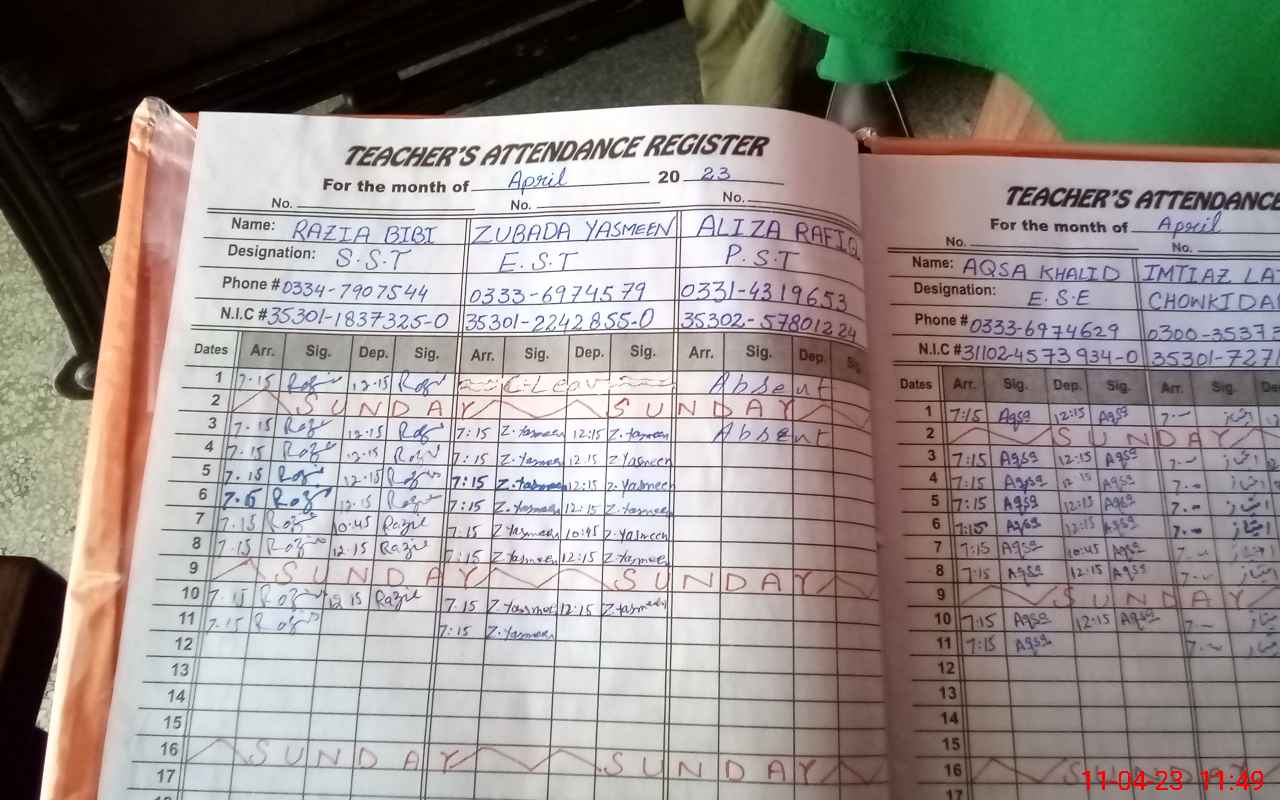 TEACHER'S ATTENDANCE REGISTER
For the month of April 20 23
No. No. No.
Name: RAZIA BIBI ZUBADA YASMEEN ALIZA RAFIQ
Designation: S.S.T E.S.T P.S.T
Phone # 0334-7907544 0333-6974579 0331-4319653
N.I.C # 35301-1837325-0 35301-2242855-0 35302-57801224
Dates Arr. Sig. Dep. Sig. Arr. Sig. Dep. Sig. Arr. Sig. Dep. Sig.
1 7.15 12.15 C-Leav Absent
2 SUNDAY SUNDAY
3 7.15 12.15 7:15 Z.Yasmeen 12:15 Z.Yasmeen Absent
4 7.15 12.15 7:15 Z.Yasmeen 12:15 Z Yasmeen
5 7.15 12.15 7:15 Z.Yasmeen 12:15 Z.Yasmeen
6 12.15 7:15 Z.Yasmeen 12:15 Z.Yasmeen
7 7.15 10:45 Razie 7:15 Z Yasmeen 10:45 Z.Yasmeen
8 7.15 12.15 Razie 7:15 Z Yasmeen 12:15 Z.Yasmeen
9 SUNDAY SUNDAY
10 7.15 12 15 Razie 7.15 Z Yasmeen 12:15 Z.Yasmeen
11 7.15 7:15 Z.Yasmeen
12
13
14
15
16 SUNDAY SUNDAY
17
TEACHER'S ATTENDANCE
For the month of April
No. No.
Name: AQSA KHALID IMTIAZ
Designation: E.S.E CHOWKIDA
Phone # 0333-6974629 0300-3537
N.I.C # 31102-4573934-0 35301-727
Dates Arr. Sig. Dep. Sig. Arr. Sig. De
1 7:15 Aqsa 12:15 Aqsa
2 SUNDAY
3 7:15 Aqsa 12:15 Aqsa
4 7:15 Aqsa 12 15 Aqsa
5 7:15 Aqsa 12:15 Aqsa
6 7:15 Aqsa 12:15 Aqsa
7 7:15 Aqsa 10:45 Aqsa
8 7:15 Aqsa 12:15 Aqsa
9 SUNDAY
10 7:15 Aqsa 12:15 Aqsa
11 7:15 Aqsa
12
13
14
15
16 SUNDAY
17
11-04-23 11:49